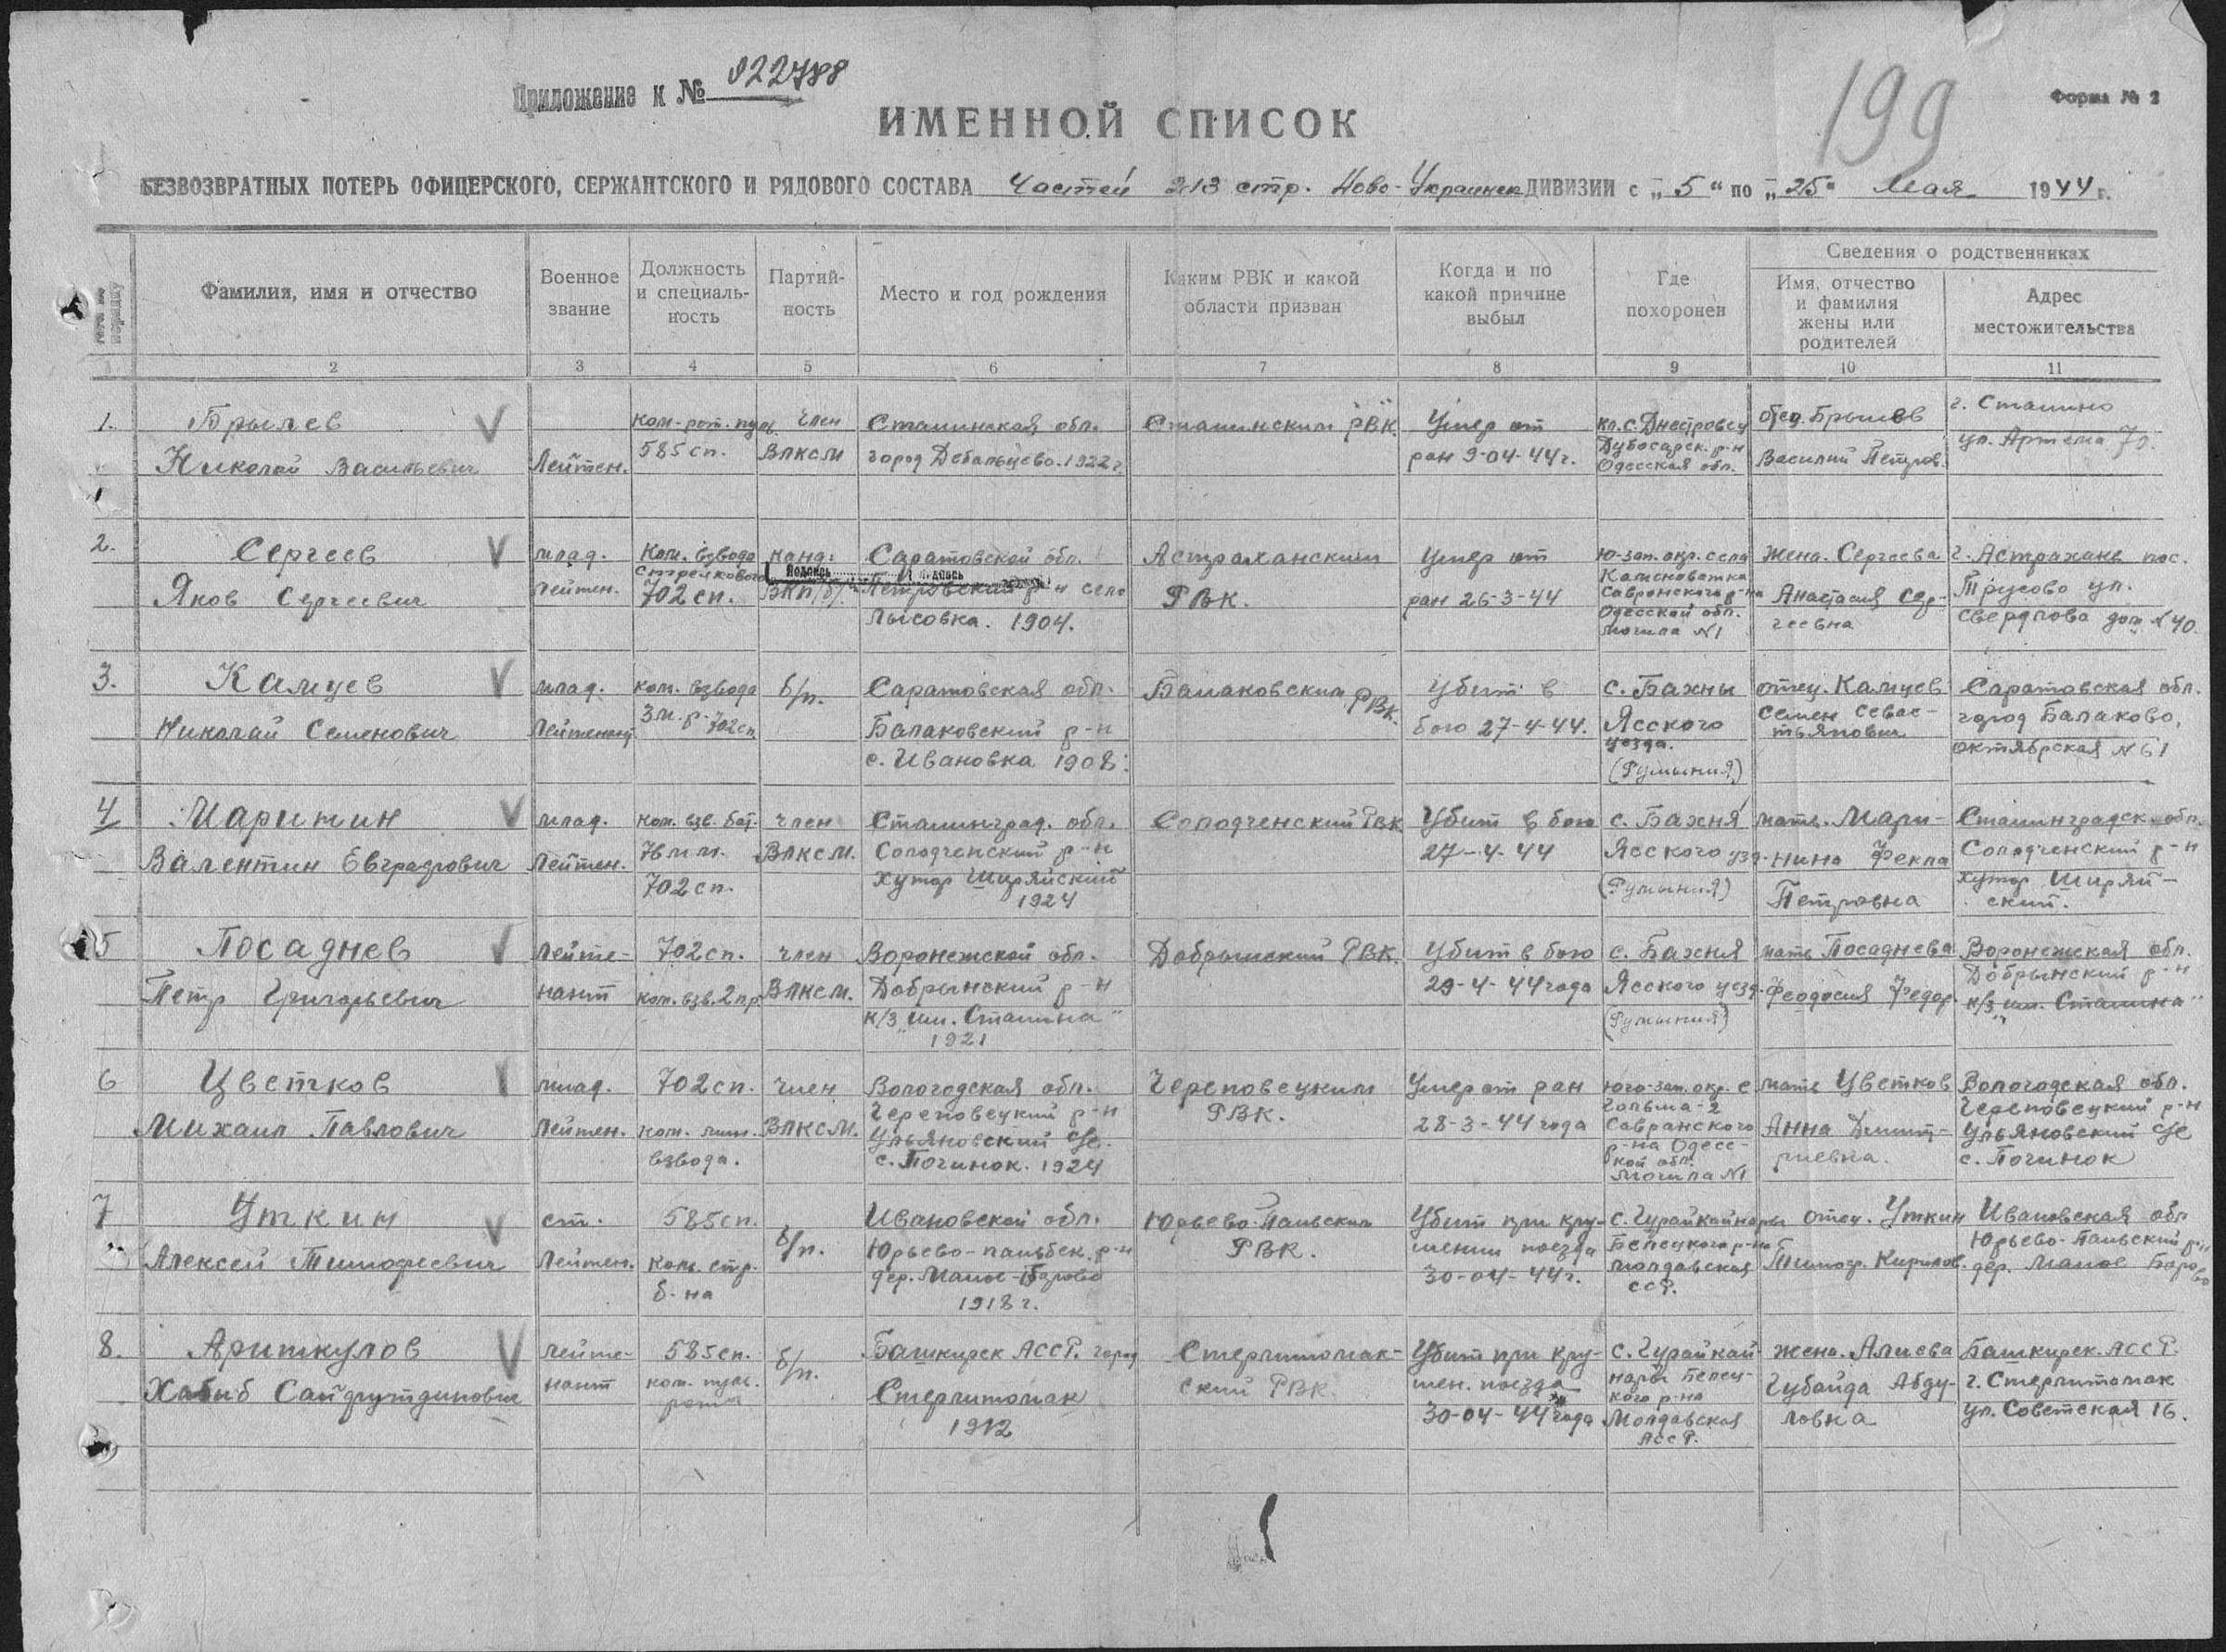 Приложение к № 022788
199
Форма № 2
ИМЕННОЙ СПИСОК
БЕЗВОЗВРАТНЫХ ПОТЕРЬ ОФИЦЕРСКОГО, СЕРЖАНТСКОГО И РЯДОВОГО СОСТАВА Частей 213 стр. Ново-Украинск ДИВИЗИИ с „5“ по „25“ Мая 1944 г.
Фамилия, имя и отчество
Военное
звание
Должность
и специаль-
ность
Партий-
ность
Место и год рождения
Каким РВК и какой
области призван
Когда и по
какой причине
выбыл
Где
похоронен
Сведения о родственниках
Имя, отчество
и фамилия
жены или
родителей
Адрес
местожительства
2 3 4 5 6 7 8 9 10 11
1.
Брылев
Николай Васильевич
Лейтен.
ком. рот. пул.
585 сп.
член
ВЛКСМ
Сталинская обл.
город Дебальцево. 1922 г.
Сталинским РВК
Умер от
ран 9-04-44 г.
кл. с. Днестровец
Дубосарск. р-н
Одесская обл.
отец. Брылев
Василий Петров.
г. Сталино
ул. Артема 70.
2.
Сергеев
Яков Сергеевич
млад.
лейтен.
Ком. взвода
стрелкового
702 сп.
канд.
ВКП/б/.
Саратовской обл.
Петровский р-н село
Лысовка. 1904.
Астраханским
РВК.
Умер от
ран 26-3-44
Ю-зап. окр. села
Каменоватка
Савронского р-на
Одесской обл.
могила №1
жена. Сергеева
Анастасия Сер-
геевна
г. Астрахань пос.
Трусово ул.
Свердлова дом №40.
3.
Камцев
Николай Семенович
млад.
Лейтенант
ком. взвода
702 сп.
б/п.
Саратовская обл.
Балаковский р-н
с. Ивановка 1908.
Балаковским РВК.
Убит в
бою 27-4-44.
с. Бахны
Ясского
уезда.
(Румыния)
отец. Камцев
Семен Севас-
тьянович
Саратовская обл.
город Балаково,
октябрская №61
4
Маринин
Валентин Евграфович
млад.
Лейтен.
ком. взв. бат.
76 мм.
702 сп.
член
ВЛКСМ.
Сталинград. обл.
Солодченский р-н
Хутор Ширяйский
1924
Солодченский РВК
Убит в бою
27-4-44
с. Бахня
Ясского уезд.
(Румыния)
мать. Мари-
нина Фекла
Петровна
Сталинградск. обл.
Солодченский р-н
хутор Ширяй-
ский.
5
Посаднев
Петр Григорьевич
Лейте-
нант
702 сп.
ком. взв. 2 п.р.
член
ВЛКСМ.
Воронежской обл.
Добрынский р-н
к/з „им. Сталина“
1921
Добрынский РВК.
Убит в бою
29-4-44 года
с. Бахня
Ясского уезд.
(Румыния)
мать Посаднева
Феодосия Федор.
Воронежская обл.
Добрынский р-н
к/з „им. Сталина“
6
Цветков
Михаил Павлович
млад.
Лейтен.
702 сп.
ком. мин.
взвода.
член
ВЛКСМ.
Вологодская обл.
Череповецкий р-н
Ульяновский с/с.
с. Починок. 1924
Череповецким
РВК.
Умер от ран
28-3-44 года
юго-зап. окр. с
Гольма-2
Савранского
р-на Одесс-
кой обл.
могила №1
мать Цветков
Анна Дмит-
риевна.
Вологодская обл.
Череповецкий р-н
Ульяновский с/с
с. Починок
7
Уткин
Алексей Тимофеевич
ст.
Лейтен.
585 сп.
ком. стр.
б-на
б/п.
Ивановской обл.
Юрьево-польбек. р-н
дер. Малое-Борово
1918 г.
Юрьево-Польским
РВК.
Убит при кру-
шении поезда
30-04-44 г.
Белецкого р-на
Молдавская
ССР.
отец. Уткин
Тимоф. Кирилов.
Ивановская обл
Юрьево-Польский р-н
дер. Малое Борово
8.
Ариткулов
Хабиб Сайфутдинович
лейте-
нант
585 сп.
ком. пул.
рота
б/п.
Башкирск АССР. город
Стерлитомак
1912
Стерлитомак-
ский РВК.
Убит при кру-
шен. поезда
30-04-44 года
с. Гурайкай
нары Белец-
кого р-на
Молдавская
АССР.
жена. Алиева
Губайда Абду-
ловна
Башкирск. АССР.
г. Стерлитомак
ул. Советская 16.